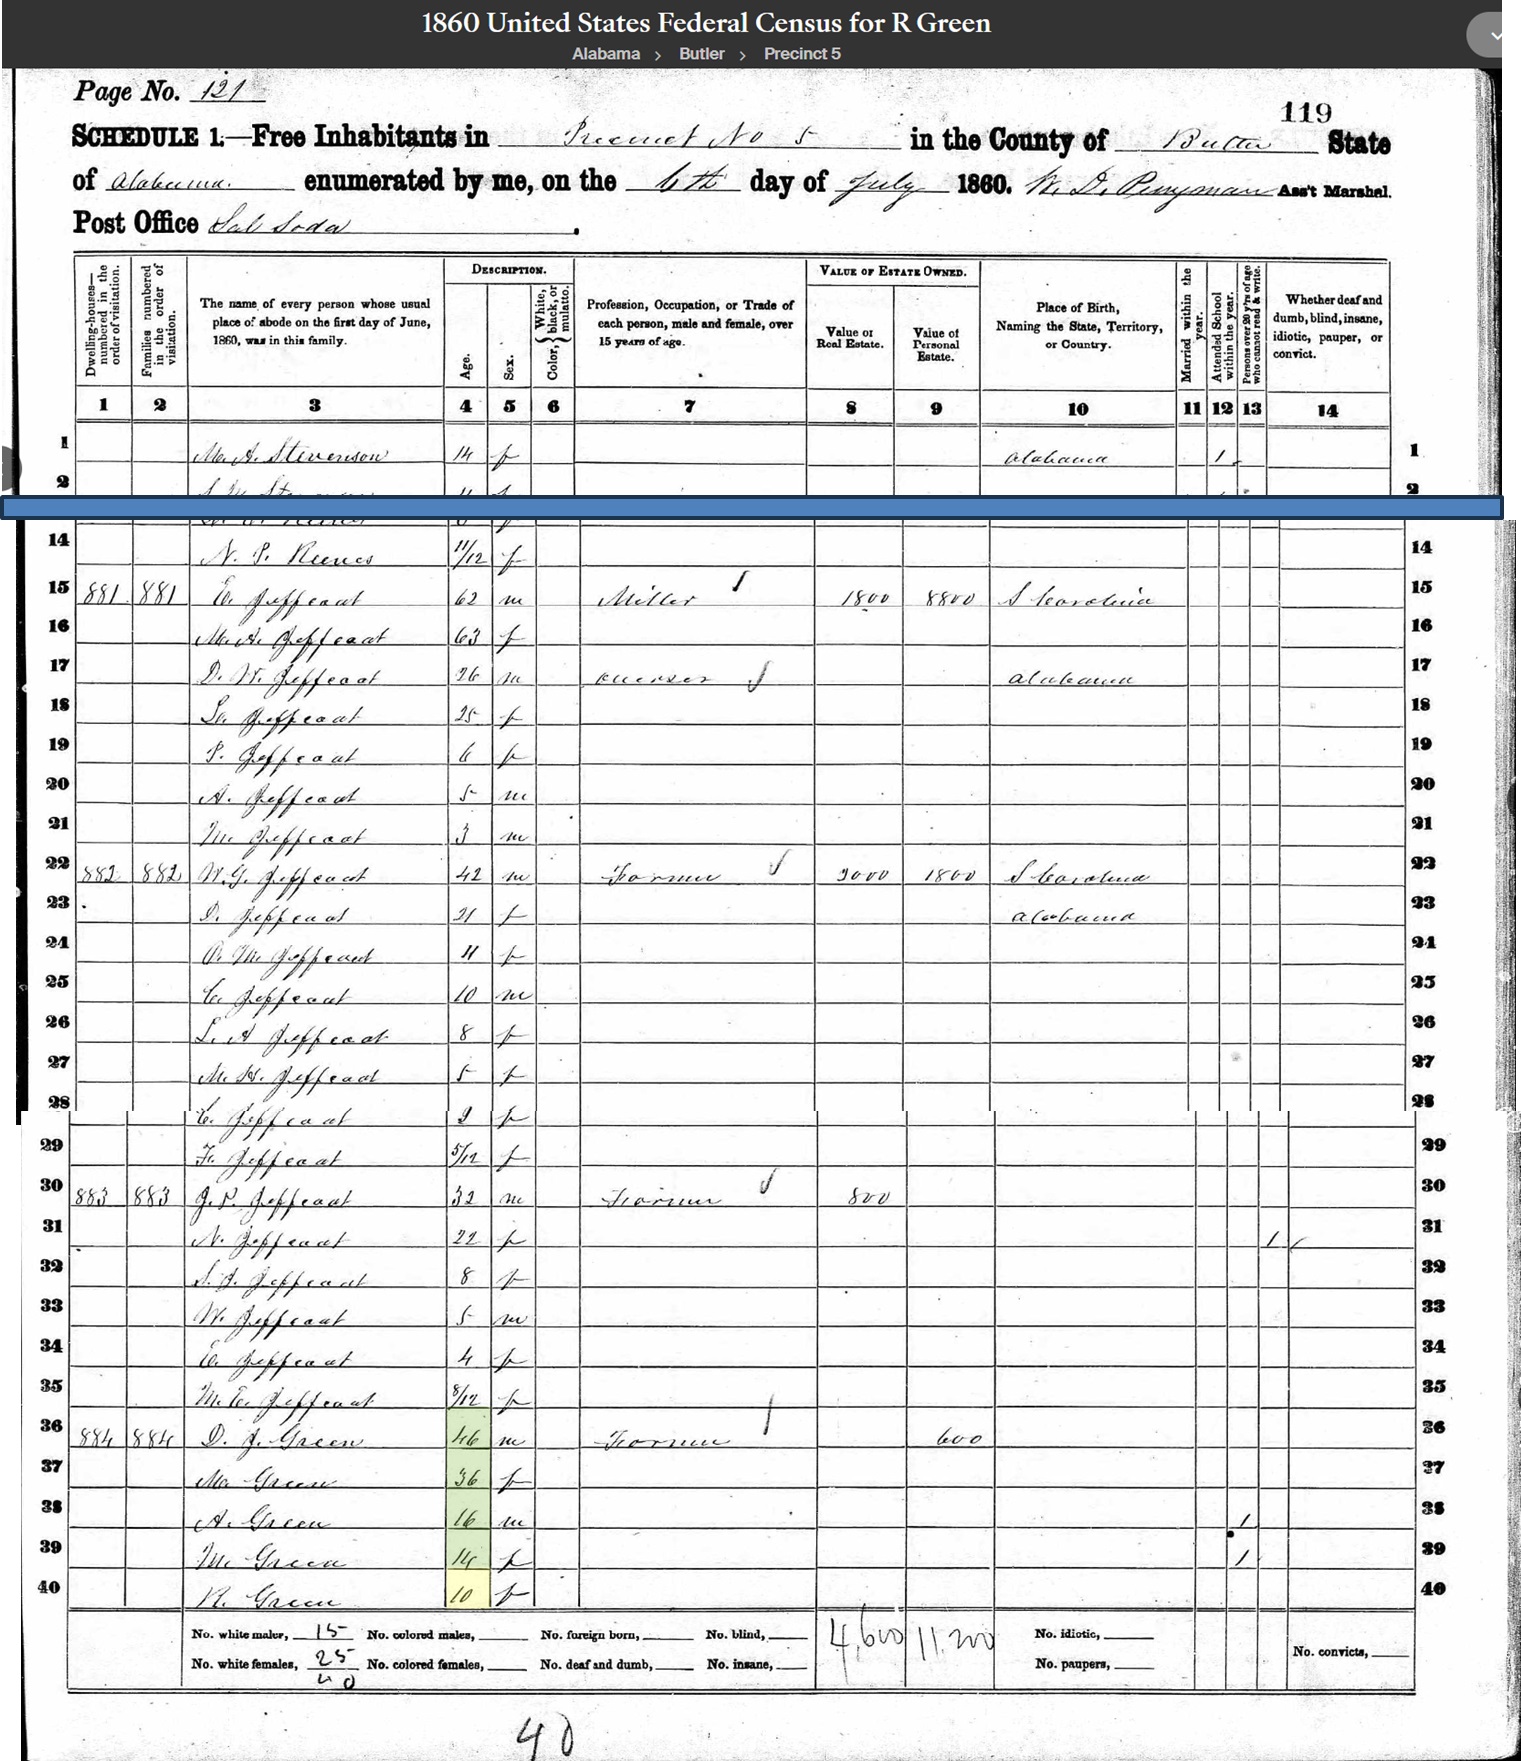 1860 United States Federal Census for R Green
Alabama > Butler > Precinct 5
Page No. 121
119
SCHEDULE 1.—Free Inhabitants in Precinct No 5 in the County of Butler State
of Alabama. enumerated by me, on the 6th day of July 1860. W. D. Perryman Ass't Marshal.
Post Office Sal Soda.
Dwelling-houses—numbered in the order of visitation.
Families numbered in the order of visitation.
The name of every person whose usual place of abode on the first day of June, 1860, was in this family.
DESCRIPTION.
Age.
Sex.
Color, White, black, or mulatto.
Profession, Occupation, or Trade of each person, male and female, over 15 years of age.
VALUE OF ESTATE OWNED.
Value of Real Estate.
Value of Personal Estate.
Place of Birth, Naming the State, Territory, or Country.
Married within the year.
Attended School within the year.
Persons over 20 y'rs of age who cannot read & write.
Whether deaf and dumb, blind, insane, idiotic, pauper, or convict.
1 2 3 4 5 6 7 8 9 10 11 12 13 14
1 M. A. Stevenson 14 f Alabama 1 1
2 2
14 N. P. Reenes 11/12 f 14
15 881 881 E. Jeffcoat 62 m Miller 1800 8800 S Carolina 15
16 M. A. Jeffcoat 63 f 16
17 D. W. Jeffcoat 26 m Alabama 17
18 Jeffcoat 25 f 18
19 P. Jeffcoat 6 f 19
20 A. Jeffcoat 5 m 20
21 M. Jeffcoat 3 m 21
22 882 882 W. G. Jeffcoat 42 m Farmer 2000 1800 S Carolina 22
23 D. Jeffcoat 31 f Alabama 23
24 M. Jeffcoat 11 f 24
25 C. Jeffcoat 10 m 25
26 L. A Jeffcoat 8 f 26
27 M. Jeffcoat 5 f 27
28 E. Jeffcoat 2 f 28
29 F. Jeffcoat 5/12 f 29
30 883 883 J. P. Jeffcoat 32 m Farmer 800 30
31 N. Jeffcoat 22 f 1 31
32 S. J. Jeffcoat 8 f 32
33 W. Jeffcoat 5 m 33
34 E. Jeffcoat 4 f 34
35 M. E. Jeffcoat 8/12 f 35
36 884 884 D. J. Green 46 m Farmer 600 36
37 M. Green 36 f 37
38 A. Green 16 m 1 38
39 M. Green 14 f 1 39
40 R. Green 10 f 40
No. white males, 15 No. colored males, No. foreign born, No. blind, 4,600 11,200 No. idiotic,
No. white females, 25 No. colored females, No. deaf and dumb, No. insane, No. paupers, No. convicts,
40
40